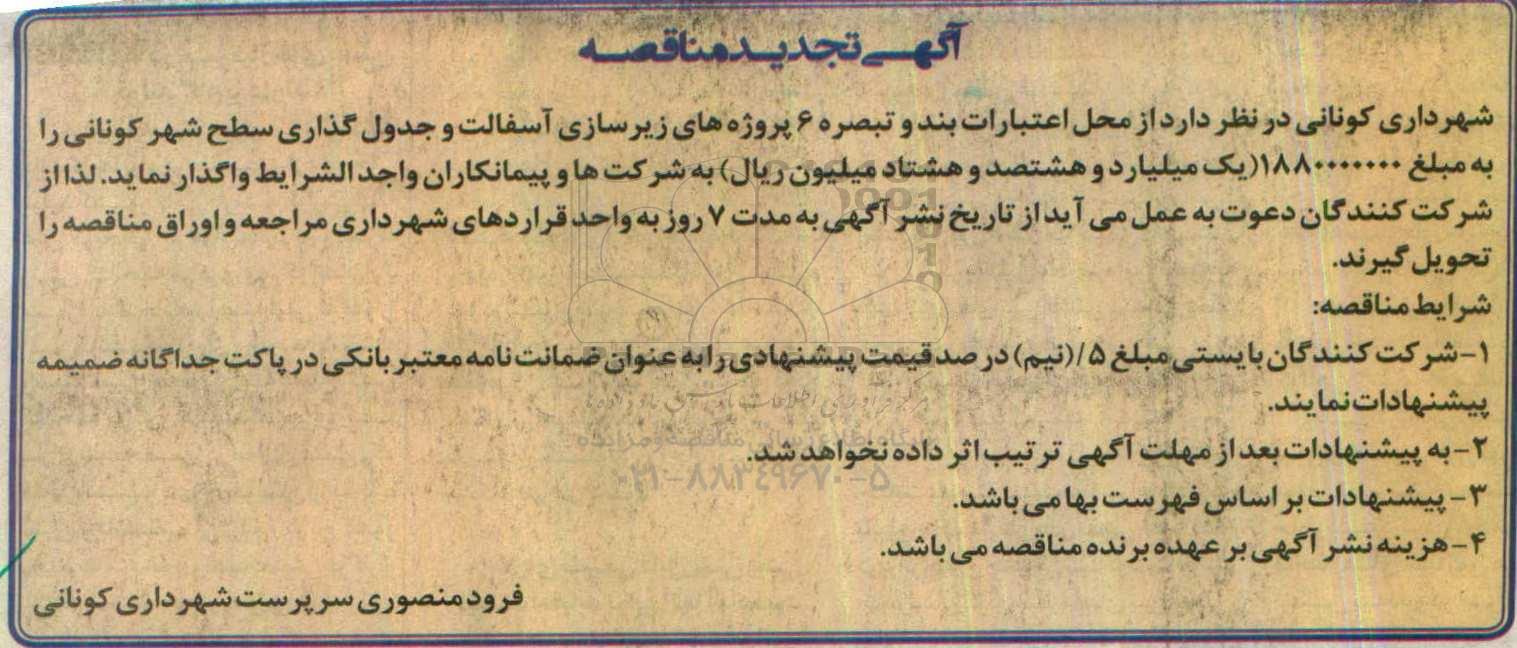 آگهی تجدید مناقصه
شهرداری کونانی در نظر دارد از محل اعتبارات بند و تبصره ۶ پروژه های زیرسازی آسفالت و جدول گذاری سطح شهر کونانی را
به مبلغ ۱۸۸۰۰۰۰۰۰۰(یک میلیارد و هشتصد و هشتاد میلیون ریال) به شرکت ها و پیمانکاران واجد الشرایط واگذار نماید. لذا از
شرکت کنندگان دعوت به عمل می آید از تاریخ نشر آگهی به مدت ۷ روز به واحد قراردهای شهرداری مراجعه و اوراق مناقصه را
تحویل گیرند.
شرایط مناقصه:
۱-شرکت کنندگان بایستی مبلغ ۵/(نیم) درصد قیمت پیشنهادی را به عنوان ضمانت نامه معتبر بانکی در پاکت جداگانه ضمیمه
پیشنهادات نمایند.
۲-به پیشنهادات بعد از مهلت آگهی ترتیب اثر داده نخواهد شد.
۰۲۱-۸۸۳۴۹۶۷۰-۵
۳- پیشنهادات بر اساس فهرست بها می باشد.
۴-هزینه نشر آگهی بر عهده برنده مناقصه می باشد.
فرود منصوری سرپرست شهرداری کونانی